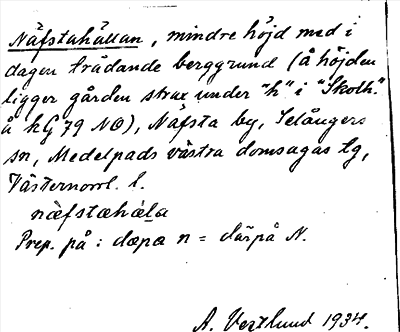 Näfstahällan, mindre höjd med i
dagen trädande berggrund (å höjden
ligger gården strax under "h" i "Skolh."
å kG 79 NO), Näfsta by, Selångers
sn, Medelpads västra domsagas tg,
Västernorrl. l.
næfstæhála
Prep. på: dæpæ n = därpå N.
A. Vestlund 1934.